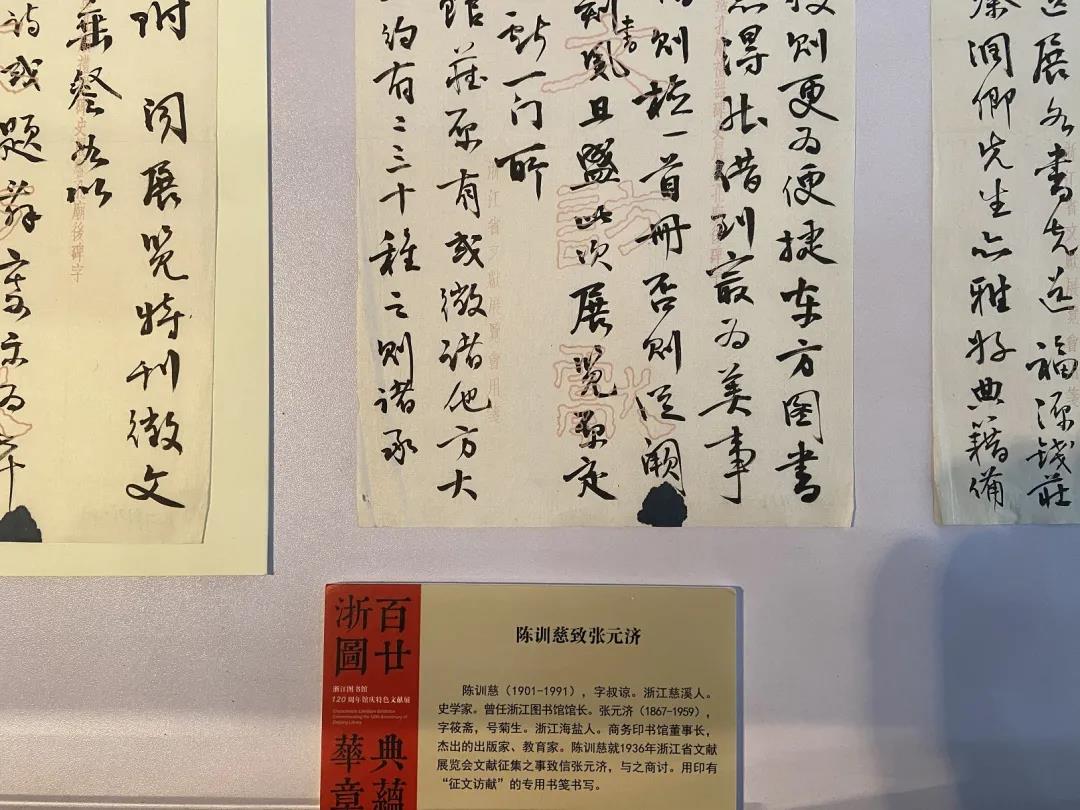 展各書先送福源錢莊
秦潤卿先生亦雅好典籍備
則更为便捷东方图書
得能借到最为美事
則檢一首冊否則從闕
刻書風且盛此次展览原定
一门所
館莊原有或徵諸他方大
约有二三十種之則諸承
附閱展览特刊徵文
垂詧如以
詩或題辞
浙江省文獻展覽會用箋
百廿
浙圖
浙江图书馆
120周年馆庆特色文献展
典蘊
華章
陈训慈致张元济
陈训慈（1901-1991），字叔谅。浙江慈溪人。
史学家。曾任浙江图书馆馆长。张元济（1867-1959），
字筱斋，号菊生。浙江海盐人。商务印书馆董事长，
杰出的出版家、教育家。陈训慈就1936年浙江省文献
展览会文献征集之事致信张元济，与之商讨。用印有
“征文访献”的专用书笺书写。